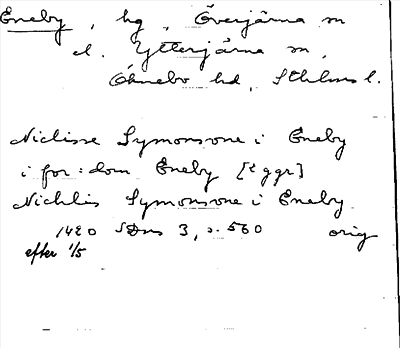 Eneby, hg, Överjärna sn
el. Ytterjärna sn,
Öknebo hd, Sthlms l.
Niclisse Symonssone i Eneby
i for:dom Eneby [2 ggr]
Nichlis Symonssone i Eneby
1420 SDns 3, s. 560 orig
efter 1/5